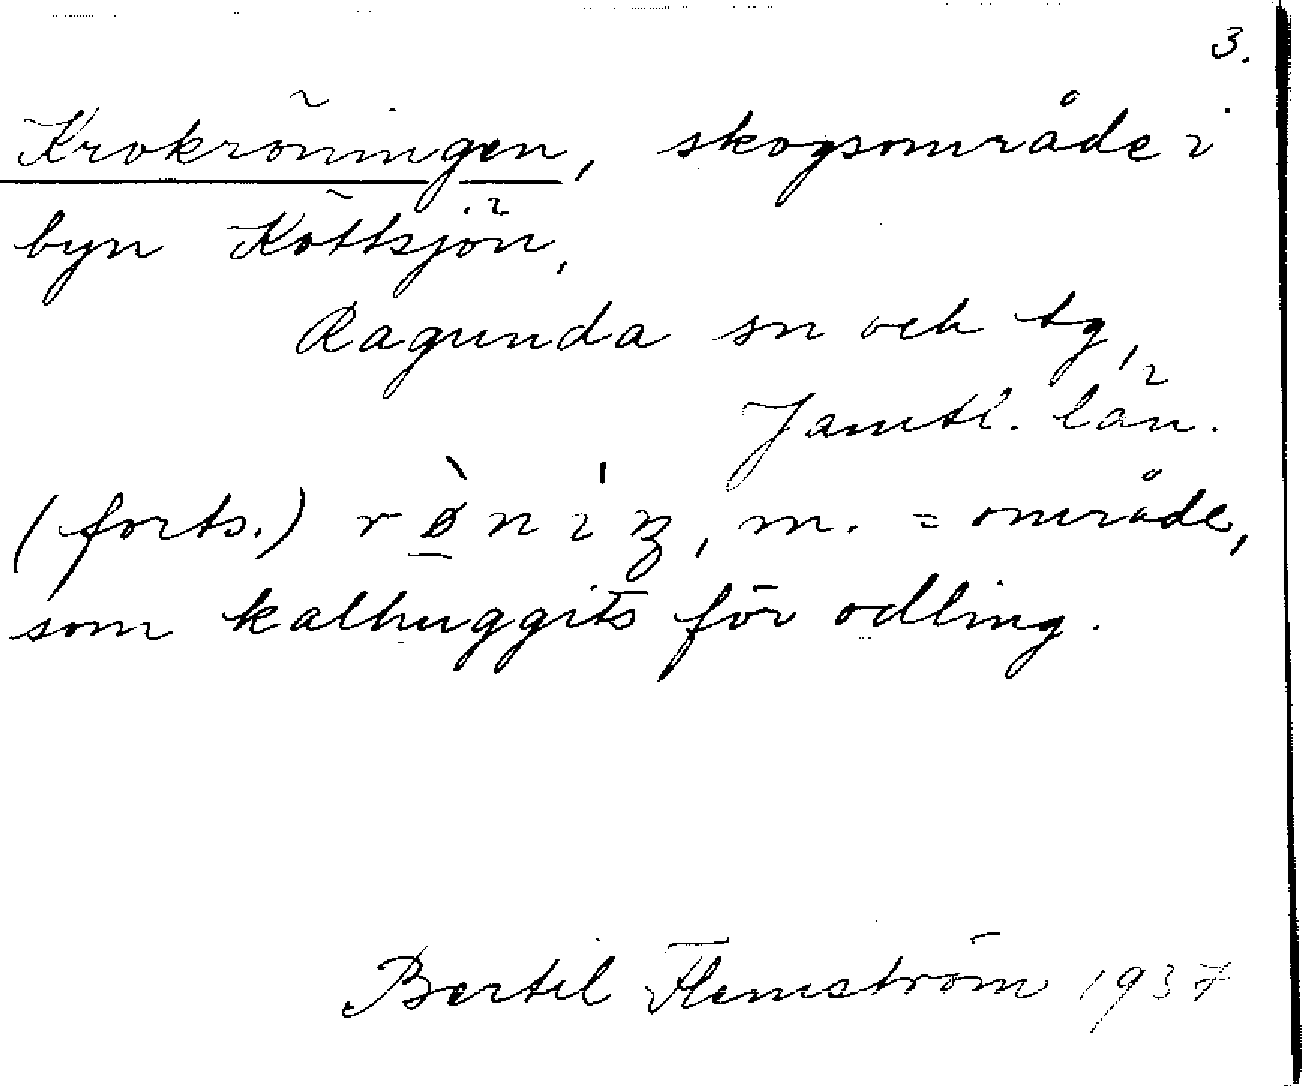 3.
Krokröningen, skogsområde i
byn Köttsjön,
Ragunda sn och tg,
Jämtl. län.
(forts.) m. = område,
som kalhuggits för odling.
Bertil Flemström 1937